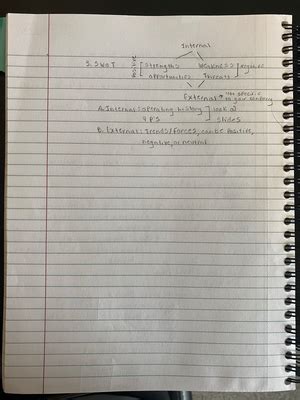 Internal
5. SWOT Positive Strengths Weaknesses Negative
opportunities Threats
External → Not specific
to your company
A. Internal: operating history look at
4 P'S
B. External: trends/forces, can be positive,
negative, or neutral